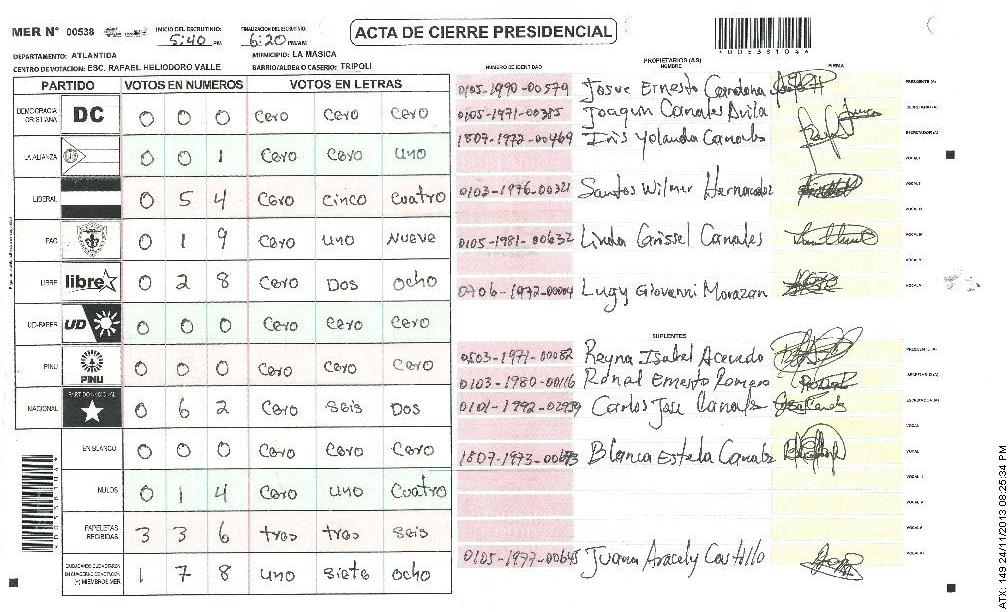 MER N° 00538
INICIO DEL ESCRUTINIO: 5:40 PM
FINALIZACION DEL ESCRUTINIO: 6:20 PM/AM
ACTA DE CIERRE PRESIDENCIAL
DEPARTAMENTO: ATLANTIDA
MUNICIPIO: LA MASICA
CENTRO DE VOTACION: ESC. RAFAEL HELIODORO VALLE
BARRIO/ALDEA O CASERIO: TRIPOLI
PARTIDO VOTOS EN NUMEROS VOTOS EN LETRAS
DEMOCRACIA CRISTIANA DC 0 0 0 Cero Cero Cero
LA ALIANZA 0 0 1 Cero Cero Uno
LIBERAL 0 5 4 Cero Cinco Cuatro
PAC 0 1 9 Cero Uno Nueve
LIBRE libre 0 2 8 Cero Dos Ocho
UD-FAPER UD 0 0 0 Cero Cero Cero
PINU PINU 0 0 0 Cero Cero Cero
NACIONAL PARTIDO NACIONAL 0 6 2 Cero Seis Dos
EN BLANCO 0 0 0 Cero Cero Cero
NULOS 0 1 4 Cero Uno Cuatro
PAPELETAS RECIBIDAS 3 3 6 tres tres Seis
(+) MIEMBROS MER 1 7 8 uno Siete ocho
NUMERO DE IDENTIDAD
PROPIETARIOS (AS)
NOMBRE
FIRMA
0105-1990-00579 Josue Ernesto Cardona PRESIDENTE (A)
0105-1971-00385 Joaquin Canales Avila SECRETARIO (A)
1807-1977-00469 Iris Yolanda Canales ESCRUTADOR (A)
VOCAL I
0103-1976-00321 Santos Wilmer Hernandez
0105-1981-00632 Linda Grissel Canales
0906-1977-00004 Lugy Giovenni Morazan
SUPLENTES
0503-1971-00082 Reyna Isabel Acevedo PRESIDENTE (A)
0103-1980-00116 Ronal Ernesto Romero SECRETARIO (A)
0101-1992-02939 Carlos Jose Canales ESCRUTADOR (A)
1807-1973-00693 Blanca Estela Canales
0105-1977-00645 Juana Aracely Castillo
ATX: 149 24/11/2013 08:25:34 PM